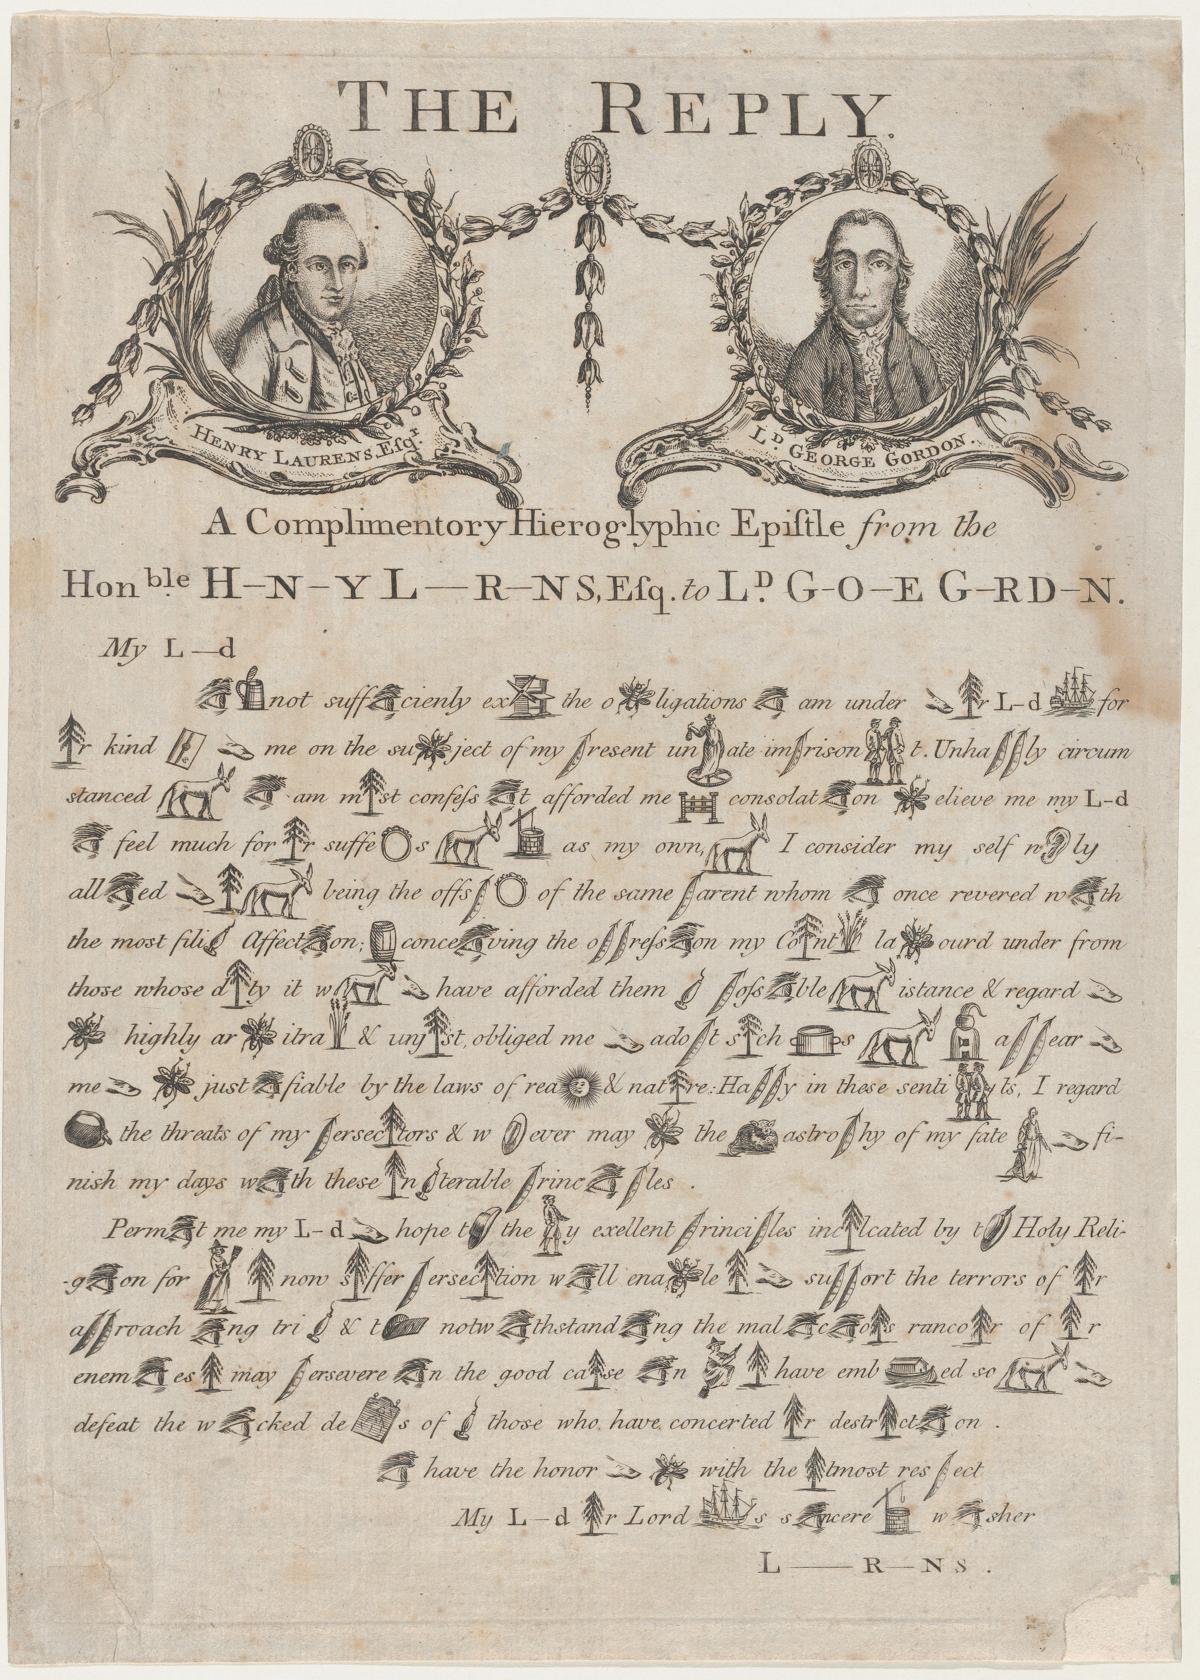 THE REPLY.
HENRY LAURENS, Eſqr.
LD. GEORGE GORDON.
A Complimentory Hieroglyphic Epiſtle from the
Honble. H–N–Y L—R–NS, Eſq. to LD. G–O–E G–RD–N.
My L—d
not suff cienly ex the o ligations am under r L–d for
r kind me on the su ject of my resent un ate im rison t. Unha ly circum
stanced am m st confeſs t afforded me consolat on elieve me my L–d
feel much for r suffe s as my own, I consider my self n ly
all ed being the offs of the same arent whom once revered w th
the most fili Affect on; conce ving the o reſs on my Co nt la ourd under from
those whose d ty it w have afforded them oſs ble istance & regard
highly ar itra & unj st, obliged me ado t s ch s a ear
me just fiable by the laws of rea & nat re: Ha y in these senti ts, I regard
the threats of my ersec tors & w ever may the astro hy of my fate fi-
nish my days w th these n terable rinc les .
Perm t me my L–d hope t the y exellent rinci les inc lcated by t Holy Reli-
-g on for now s ffer ersec tion w ll ena le su ort the terrors of r
a roach ng tri & t notw thstand ng the mal c o s ranco r of r
enem es may ersevere n the good ca se n have emb ed so
defeat the w cked de s of those who have concerted r destr ct on .
have the honor with the tmost res ect
My L–d r Lord s s ncere w sher
L——R—NS .